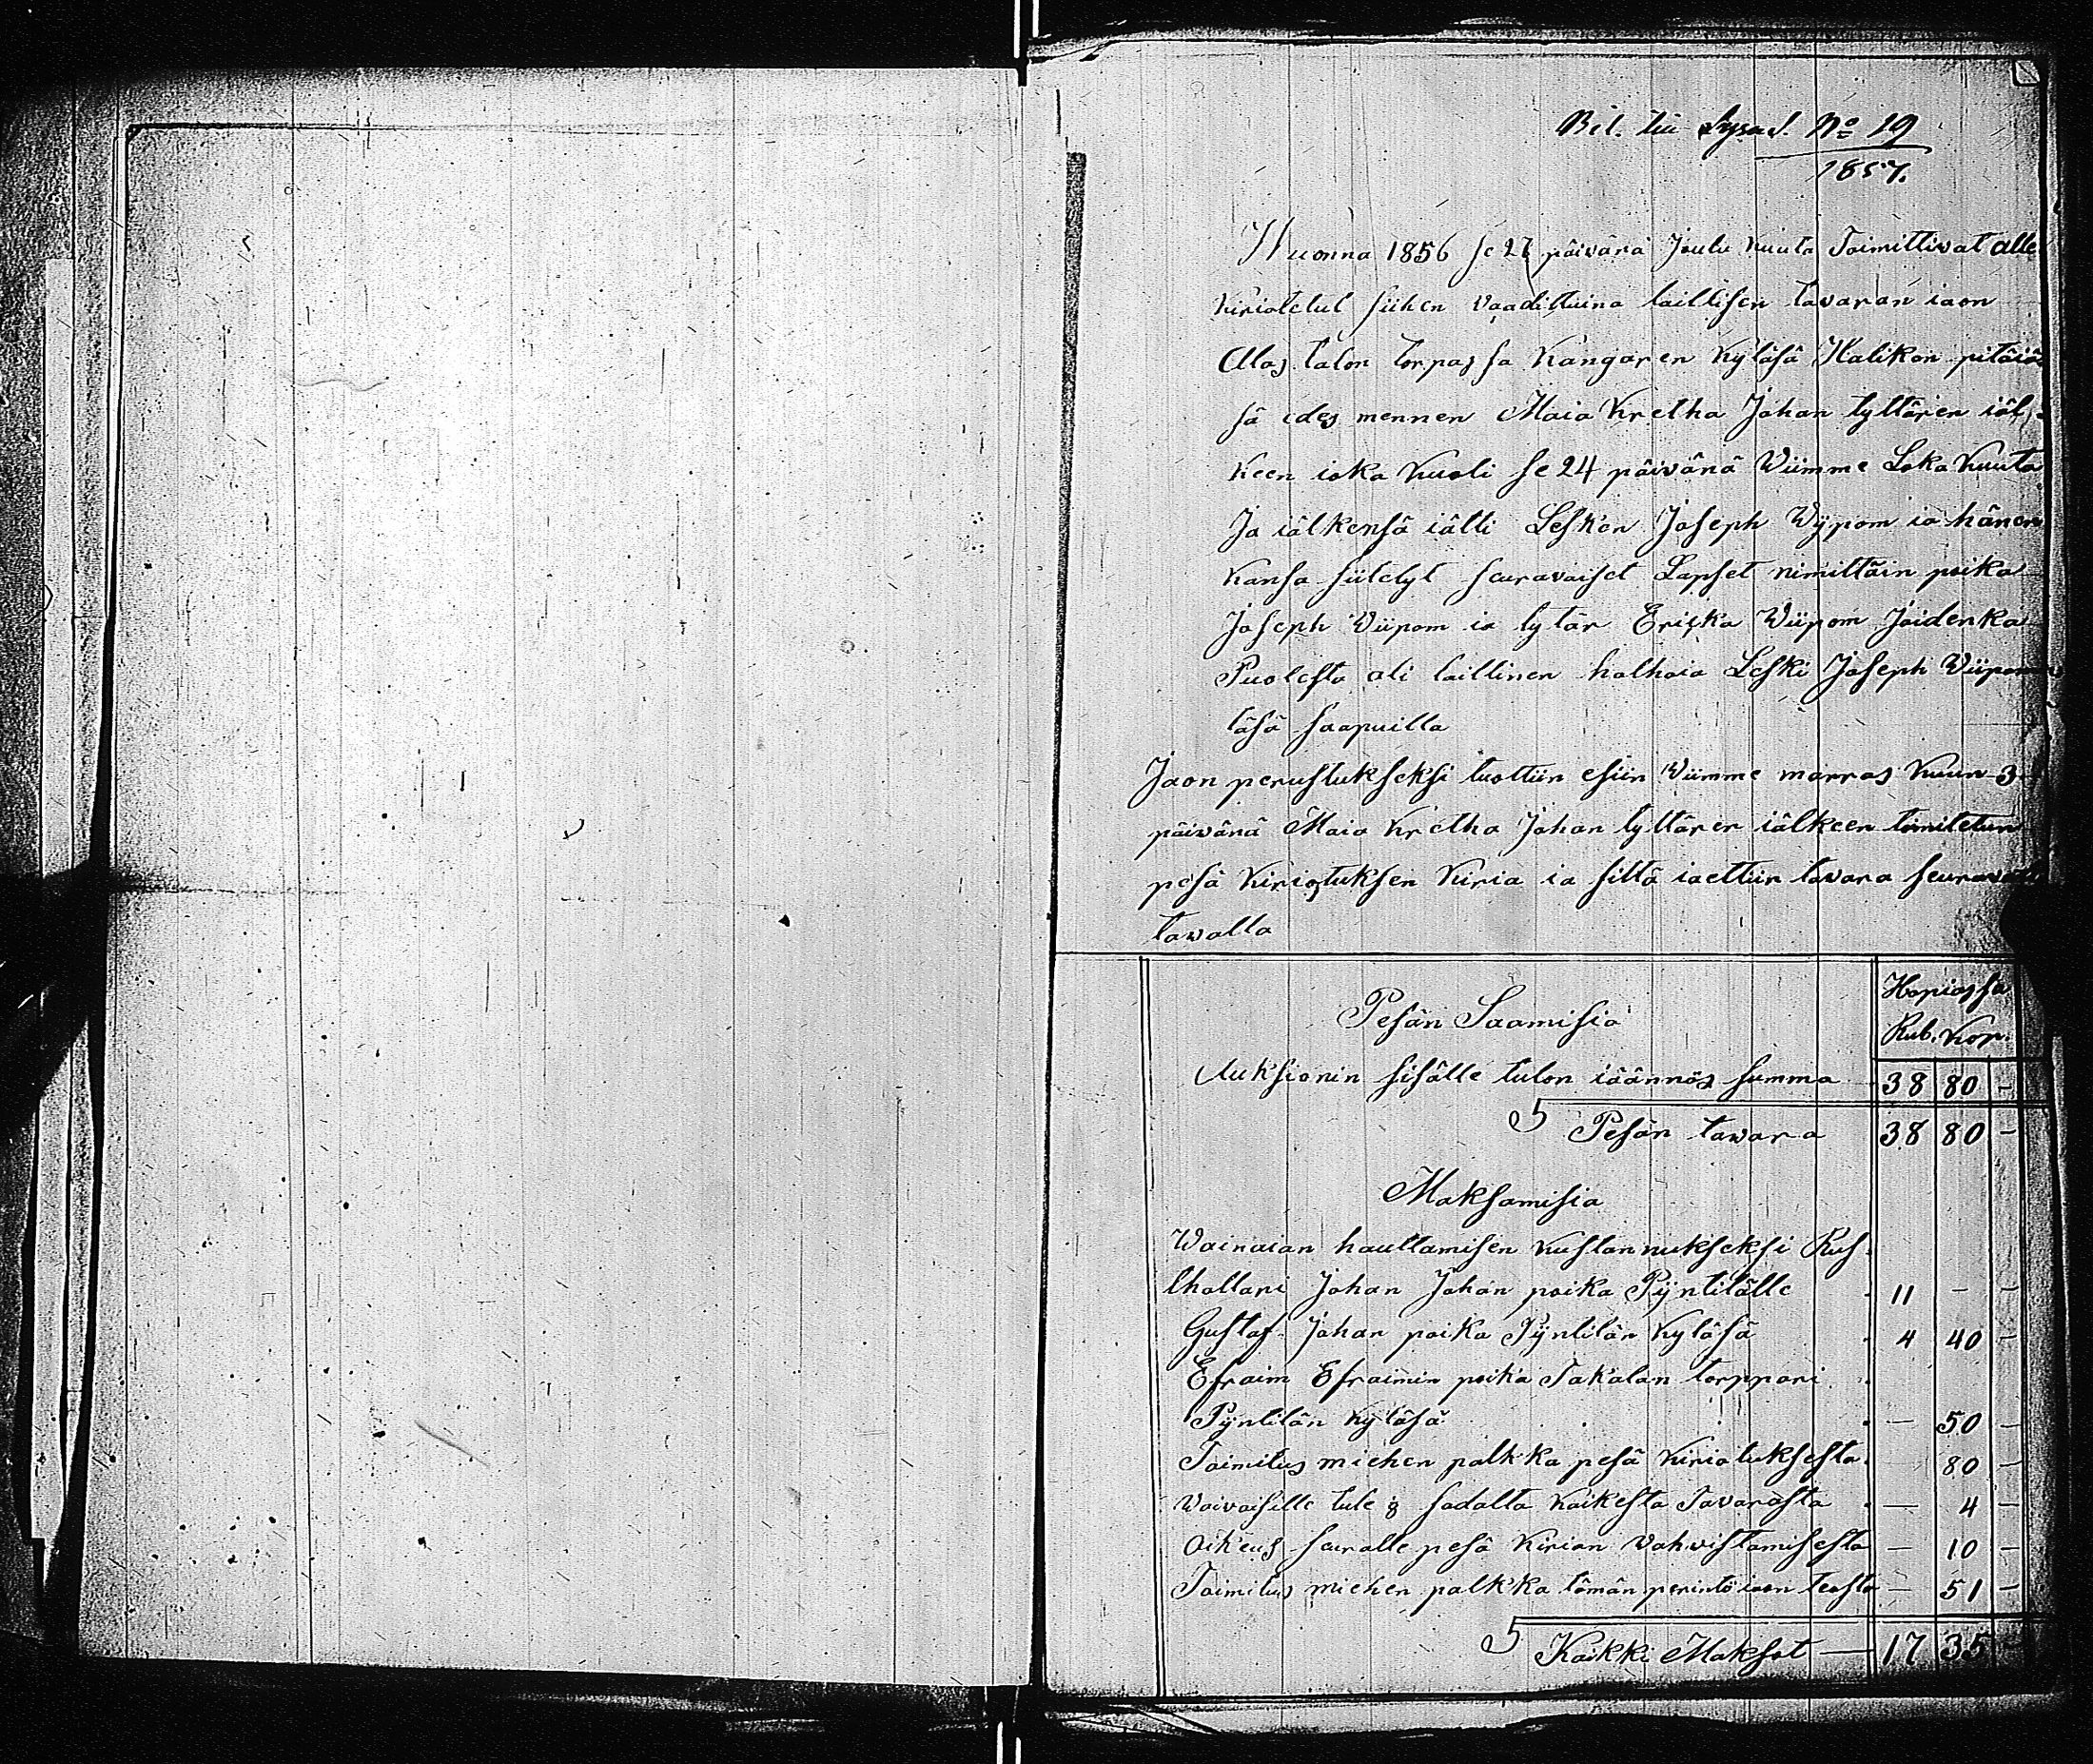 Bil. till Lysad. No 19
1857.
Wuonna 1856 se 27 päivänä Joulu kuuta Toimittivat alle
kiriotetut siihen vaadittuina laillisen tavaran iaon
Alas talon torpassa Kangaren kyläsä Halikon pitäiä
sä edes mennen Maia Kretha Johan tyttären iäl-
keen ioka kuoli se 24 päivänä Wiimme Loka kuuta
Ja iälkensä iätti Lesken Joseph Wijpom ia hänen
kansa siitetyt seuravaiset Lapset nimittäin poika
Joseph Wiipom ia tytär Ericka Wiipom Joidenka
Puolesta oli laillinen halhoia Leski Joseph Wiipom
täsä saapuilla
Jaon perustukseksi tuottiin esiin Wiimme marras kuun 3
päivänä Maia Kretha Johan tyttären iälkeen toimitetun
pesä kiriotuksen kiria ia sittä iaettiin tavara seuravalla
tawalla
Hopiassa
Pesän Saamisia
Rub. Kop.
Auksionin sisälle tulon iäännös summa 38 80 -
S Pesän tawara 38 80 -
Maksamisia
Wainaian hauttamisen kustannukseksi Rus-
thollari Johan Johan poika Pyntilälle 11 - -
Gustaf Johan poika Pyntilän kyläsä 4 40 -
Efraim Efraimin poika Takalan torppari
Pyntilän kyläsä - 50 -
Toimitus miehen palkka pesä kiriotuksesta 80 -
Waivasille tule 1/8 sadalta kaikesta Tavarasta - 4 -
Oikeus seuralle pesä kirian vahvistamisesta - 10 -
Toimitus miehen palkka tämän perintö iaon teosta - 51 -
S Kaikki Maksot - 17 35 -